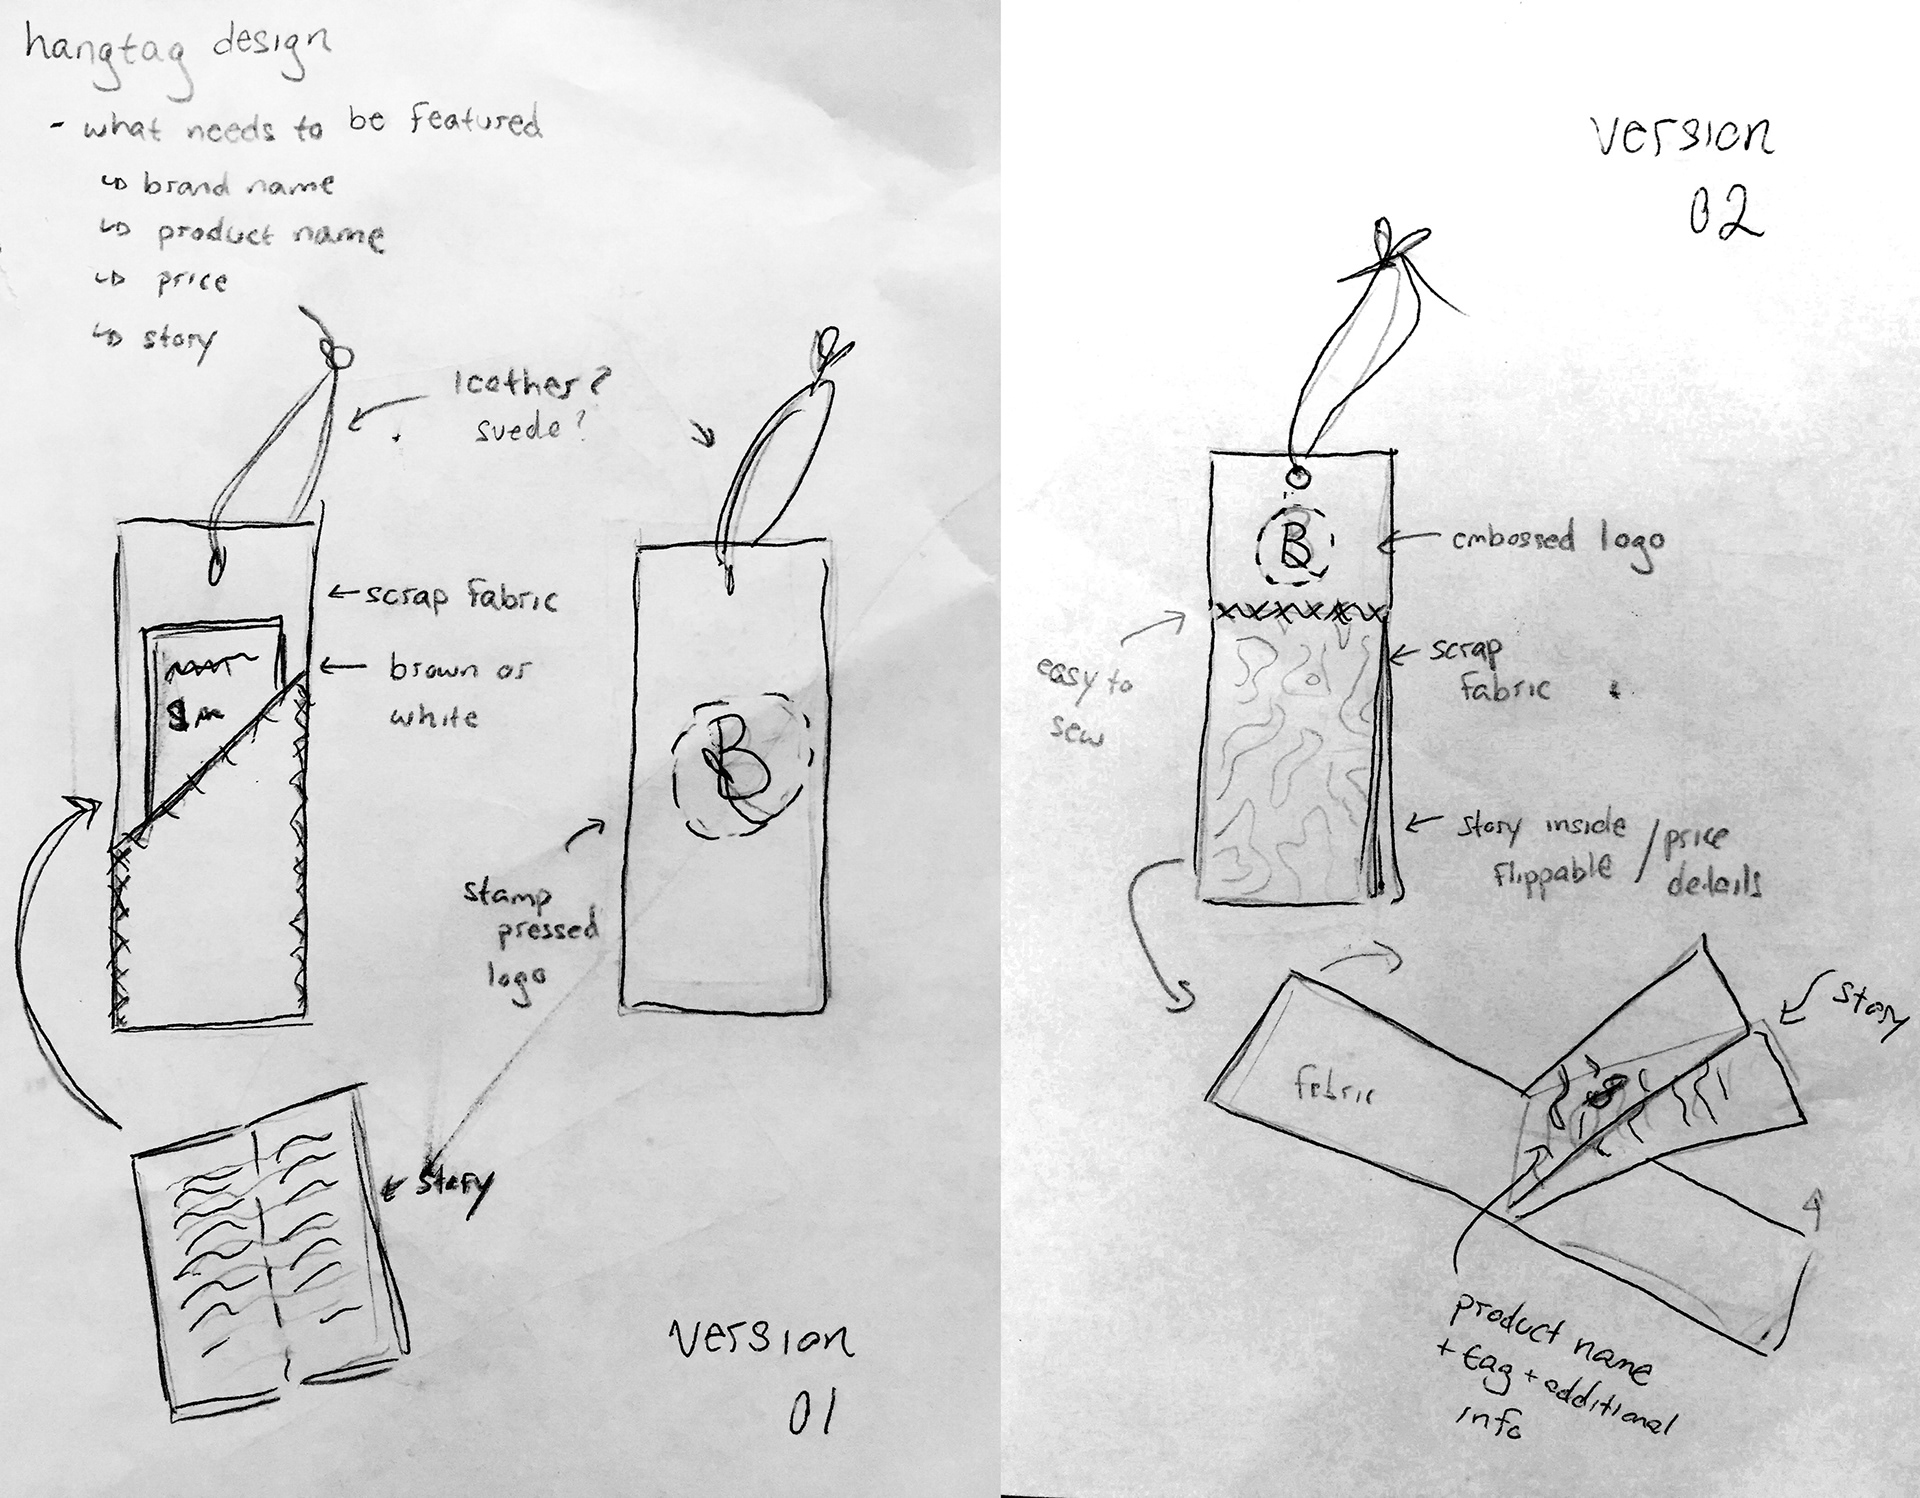 hangtag design
- what needs to be featured
↳ brand name
↳ product name
↳ price
↳ story
leather?
suede?
← scrap fabric
← brown or
white
stamp
pressed
logo
B
← story
version
01
version
02
B
← embossed logo
easy to
sew
← scrap
fabric
← story inside / price
flippable / details
fabric
story
product name
+ tag + additional
info